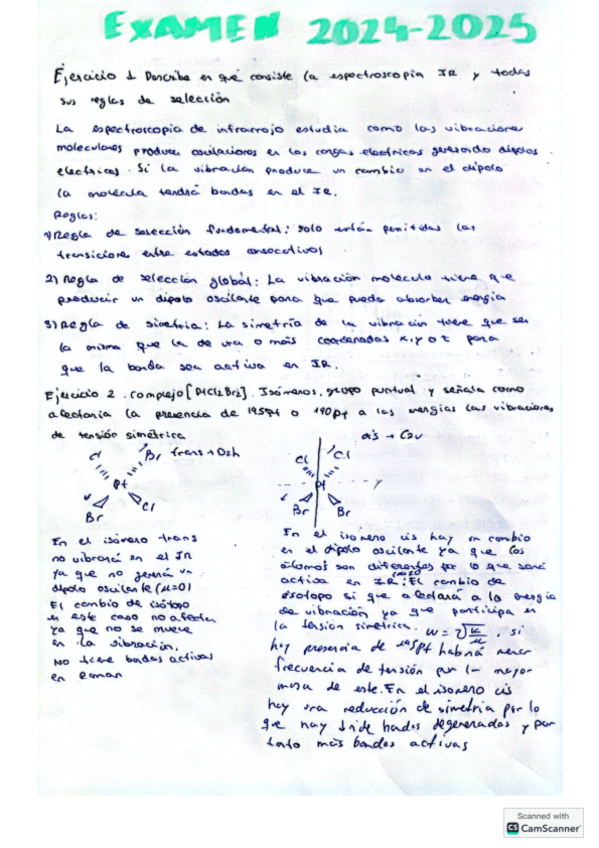 EXAMEN 2024-2025
Ejercicio 1 Describa en qué consiste la espectroscopia IR y todas
sus reglas de selección
La espectroscopia de infrarrojo estudia como las vibraciones
moleculares producen oscilaciones en las cargas electricas generando dipolos
electricos. Si la vibración produce un cambio en el dipolo
la molécula tendrá bandas en el IR.
Reglas:
1) Regla de selección fundamental: solo están permitidas las
transiciones entre estados consecutivos
2) Regla de selección global: La vibración molecular tiene que
producir un dipolo oscilante para que pueda absorber energia
3) Regla de simetria: La simetría de la vibración tiene que ser
la misma que la de una o más coordenadas x, y o z para
que la banda sea activa en IR.
Ejercicio 2. Complejo [PtCl2Br2]. Isómeros, grupo puntual y señala como
afectaria la presencia de 195Pt o 190Pt a las energias las vibraciones
de tensión simétrica
cis → C2v
Cl Br trans → D2h
Cl Cl
Pt
Pt y
Br Cl
Br Br
En el isómero trans
no vibrará en el IR
ya que no genera un
dipolo oscilante (μ=0)
El cambio de isótopo
en este caso no afecta
ya que no se mueve
en la vibración.
No tiene bandas activas
en Raman
En el isomero cis hay un cambio
en el dipolo oscilante ya que los
átomos son diferentes por lo que será
activa en IR (μ≠0). El cambio de
isotopo si que afectará a la energia
de vibración ya que participa en
la tensión simetrica. w = √K/μ, si
hay presencia de 195Pt habrá menor
frecuencia de tensión por la mayor
masa de este. En el isomero cis
hay una reducción de simetria por lo
que hay bandas degeneradas y por
tanto más bandas activas
Scanned with
CS CamScanner